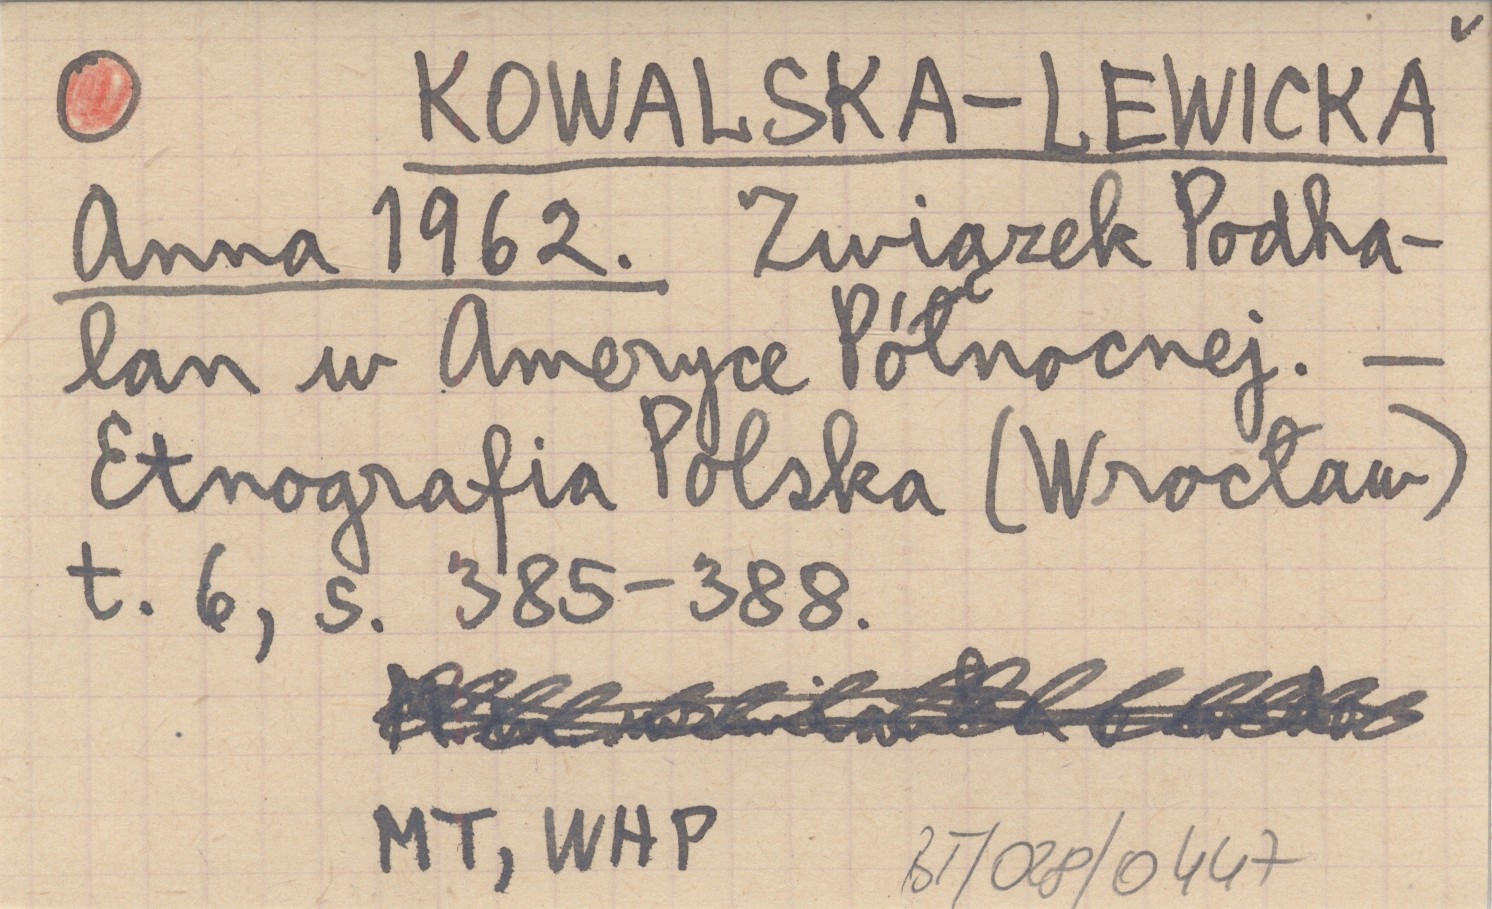 KOWALSKA-LEWICKA
Anna 1962. Związek Podha-
lan w Ameryce Północnej. —
Etnografia Polska (Wrocław)
t. 6, s. 385-388.
MT, WHP
BT/028/0447